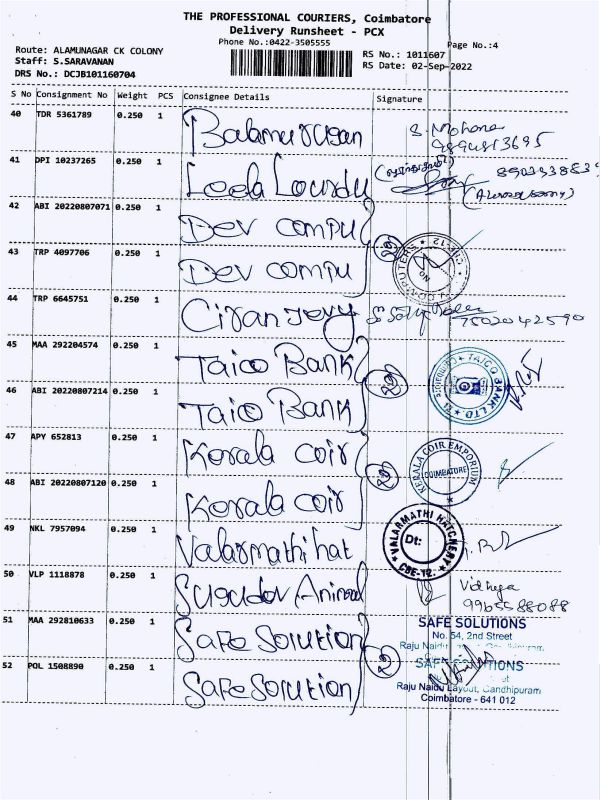 THE PROFESSIONAL COURIERS, Coimbatore
Delivery Runsheet - PCX
Phone No.:0422-3505555
Page No.:4
Route: ALAMUNAGAR CK COLONY
Staff: S.SARAVANAN
DRS No.: DCJB101160704
RS No.: 1011607
RS Date: 02-Sep-2022
S No Consignment No Weight PCS Consignee Details Signature
40 TDR 5361789 0.250 1 Balamurugan S. Mohana
9894813695
41 DPI 10237265 0.250 1 Leela Lourdu
42 ABI 20220807071 0.250 1 Dev compu
43 TRP 4097706 0.250 1 Dev compu
COMPUTERS
44 TRP 6645751 0.250 1 7502042590
45 MAA 292204574 0.250 1 Taico Bank
46 ABI 20220807214 0.250 1 Taico Bank
TAICO BANK LTD
47 APY 652813 0.250 1 Kerala coir
48 ABI 20220807120 0.250 1 Kerala coir
KERALA COIR EMPORIUM
COIMBATORE
49 NKL 7957094 0.250 1 Valarmathi hat
VALARMATHI HATCHERY
Dt:
CBE-12.
50 VLP 1118878 0.250 1 Vidhya
9965588088
51 MAA 292810633 0.250 1 Safe Solution
SAFE SOLUTIONS
No. 54, 2nd Street
52 POL 1508890 0.250 1 Safe Solution
Raju Naidu Layout, Gandhipuram
Coimbatore - 641 012